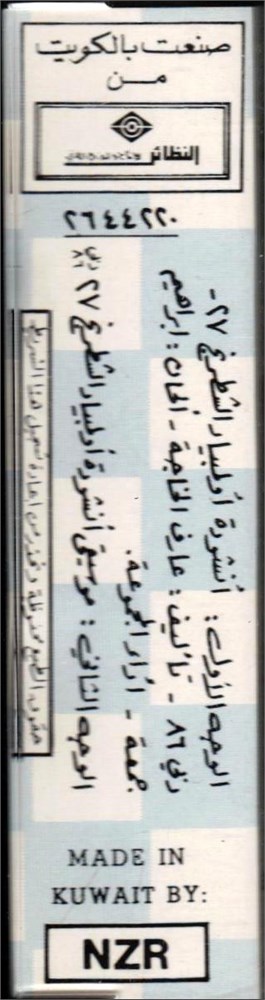 صنعت بالكويت
من
النظائر
٢٤٤٢٢٠
الوجه الأول : أنشودة أولمبياد الشطرنج ٢٧ -
دبي ٨٦ - تأليف : عارف الخاجة - ألحان : ابراهيم
جمعة - أداء المجموعة .
الوجه الثاني : موسيقى أنشودة أولمبياد الشطرنج ٢٧ دبي ٨٦
حقوق الطبع محفوظة
MADE IN
KUWAIT BY:
NZR